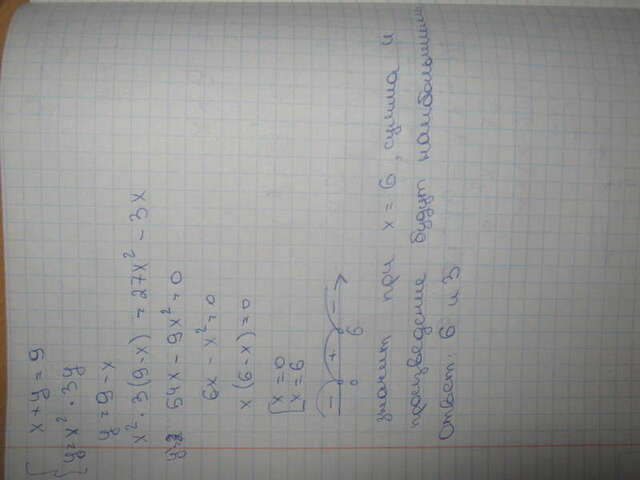 { x + y = 9
y = x² · 3y
y = 9 - x
x² · 3(9-x) = 27x² - 3x
y' = 54x - 9x² = 0
6x - x² = 0
x(6-x) = 0
[ x = 0
x = 6
- + -
0 6
значит при x = 6, сумма и
произведение будут наибольшими
Ответ: 6 и 3